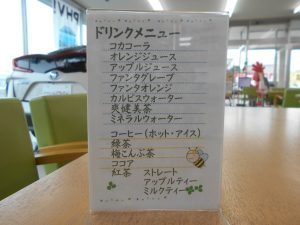 ドリンクメニュー
コカコーラ
オレンジジュース
アップルジュース
ファンタグレープ
ファンタオレンジ
カルピスウォーター
爽健美茶
ミネラルウォーター
コーヒー(ホット・アイス)
緑茶
梅こんぶ茶
ココア
紅茶 ストレート
アップルティー
ミルクティー
PHV